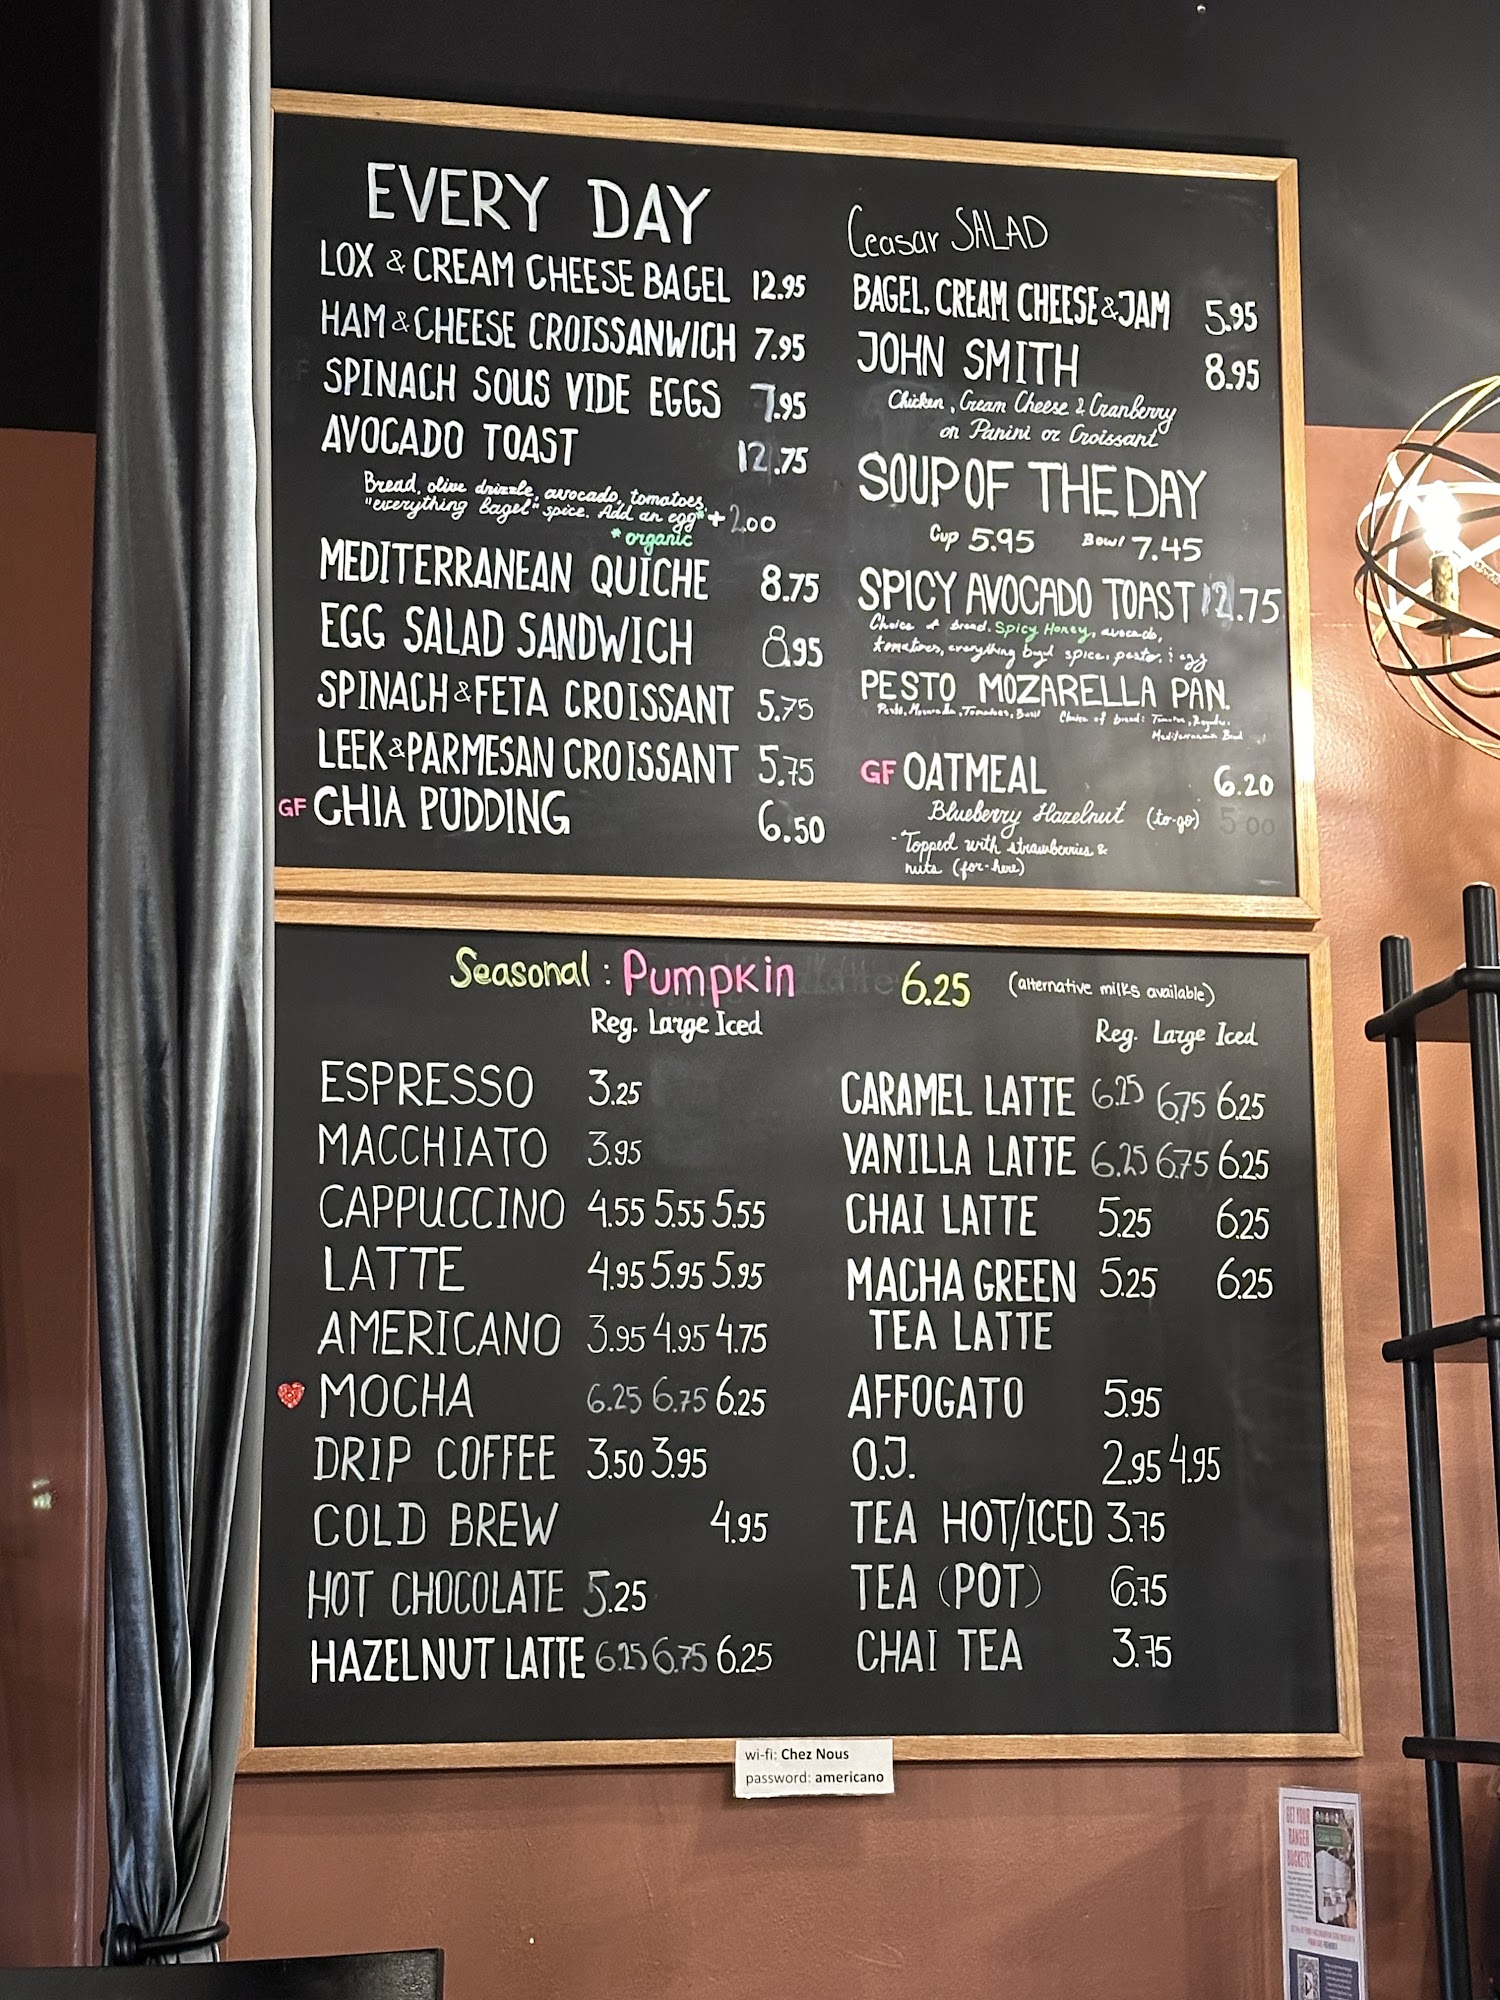 EVERY DAY
LOX & CREAM CHEESE BAGEL 12.95
HAM & CHEESE CROISSANWICH 7.95
SPINACH SOUS VIDE EGGS 7.95
AVOCADO TOAST 12.75
Bread, olive drizzle, avocado, tomatoes,
"everything Bagel" spice. Add an egg* +2.00
* organic
MEDITERRANEAN QUICHE 8.75
EGG SALAD SANDWICH 8.95
SPINACH & FETA CROISSANT 5.75
LEEK & PARMESAN CROISSANT 5.75
GF CHIA PUDDING 6.50
Ceasar SALAD
BAGEL, CREAM CHEESE & JAM 5.95
JOHN SMITH 8.95
Chicken, Cream Cheese & Cranberry
on Panini or Croissant
SOUP OF THE DAY
Cup 5.95 Bowl 7.45
SPICY AVOCADO TOAST 12.75
Choice of bread, Spicy Honey, avocado,
tomatoes, everything bagel spice, pesto, & egg
PESTO MOZARELLA PAN.
Pesto, Mozarella, Tomatoes, Basil Choice of bread: Regular,
Mediterranean Bread
GF OATMEAL 6.20
Blueberry Hazelnut (to-go) 5 00
- Topped with strawberries &
nuts (for-here)
Seasonal: Pumpkin 6.25 (alternative milks available)
Reg. Large Iced
ESPRESSO 3.25
MACCHIATO 3.95
CAPPUCCINO 4.55 5.55 5.55
LATTE 4.95 5.95 5.95
AMERICANO 3.95 4.95 4.75
MOCHA 6.25 6.75 6.25
DRIP COFFEE 3.50 3.95
COLD BREW 4.95
HOT CHOCOLATE 5.25
HAZELNUT LATTE 6.25 6.75 6.25
Reg. Large Iced
CARAMEL LATTE 6.25 6.75 6.25
VANILLA LATTE 6.25 6.75 6.25
CHAI LATTE 5.25 6.25
MACHA GREEN 5.25 6.25
TEA LATTE
AFFOGATO 5.95
O.J. 2.95 4.95
TEA HOT/ICED 3.75
TEA (POT) 6.75
CHAI TEA 3.75
wi-fi: Chez Nous
password: americano
GET YOUR
RANGER
BUCKETS!